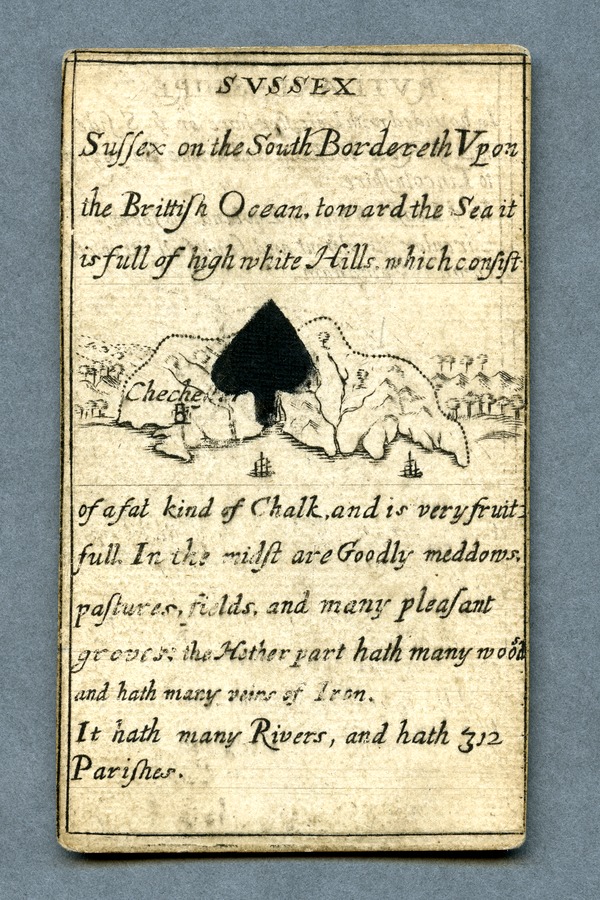 SVSSEX
Suſſex on the South Bordereth Vpon
the Brittiſh Ocean, toward the Sea it
is full of high white Hills. which conſiſt
Cheche
of a fat kind of Chalk, and is very fruit:
full. In the midſt are Goodly meddows.
paſtures, fields, and many pleaſant
groves: the Hether part hath many wood
and hath many veins of Iron.
It hath many Rivers, and hath 312
Pariſhes.